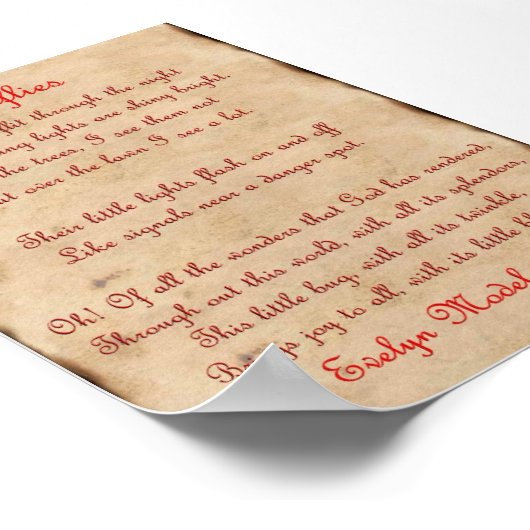 flies
flit through the night
lights are shiny bright.
the trees, I see them not
over the lawn I see a lot.
Their little lights flash on and off
Like signals near a danger spot.
Oh! Of all the wonders that God has rendered,
Through out this world, with all its splendors.
This little bug, with all its twinkle
Brings joy to all, with its little
Evelyn